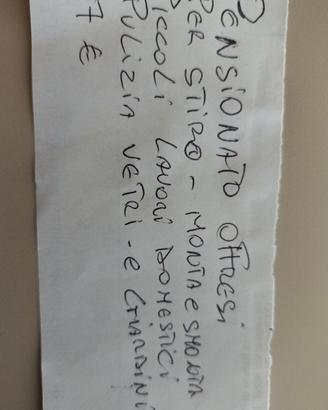 PENSIONATO OFFRESI
PER STIRO - MONTA E SMONTA
PICCOLI LAVORI DOMESTICI
PULIZIA VETRI - E GIARDINI
7 €